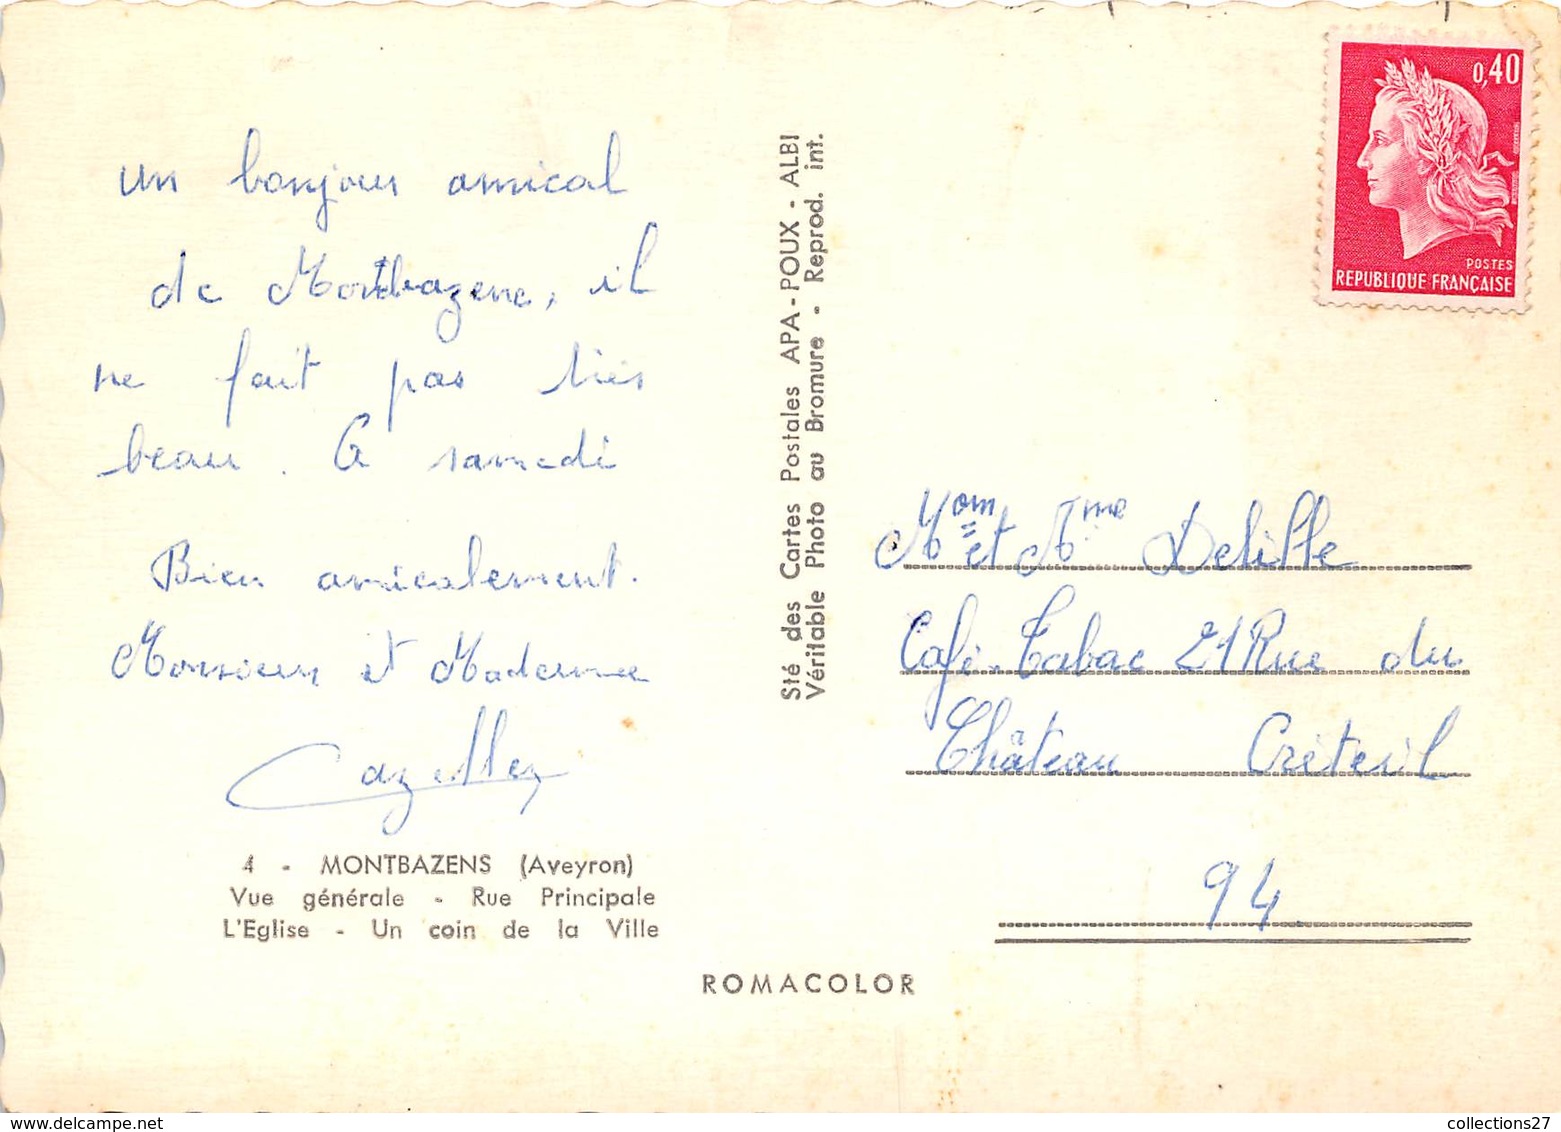 un bonjour amical
de Montbazene, il
ne fait pas très
beau. A samedi
Bien amicalement.
Monsieur et Madame
Cazellez
4 - MONTBAZENS (Aveyron)
Vue générale - Rue Principale
L'Eglise - Un coin de la Ville
ROMACOLOR
Sté des Cartes Postales APA-POUX - ALBI
Véritable Photo au Bromure - Reprod. int.
0,40
POSTES
REPUBLIQUE FRANÇAISE
et Mme Delille
Café-Tabac 21 Rue du
Château Créteil
94
collections27